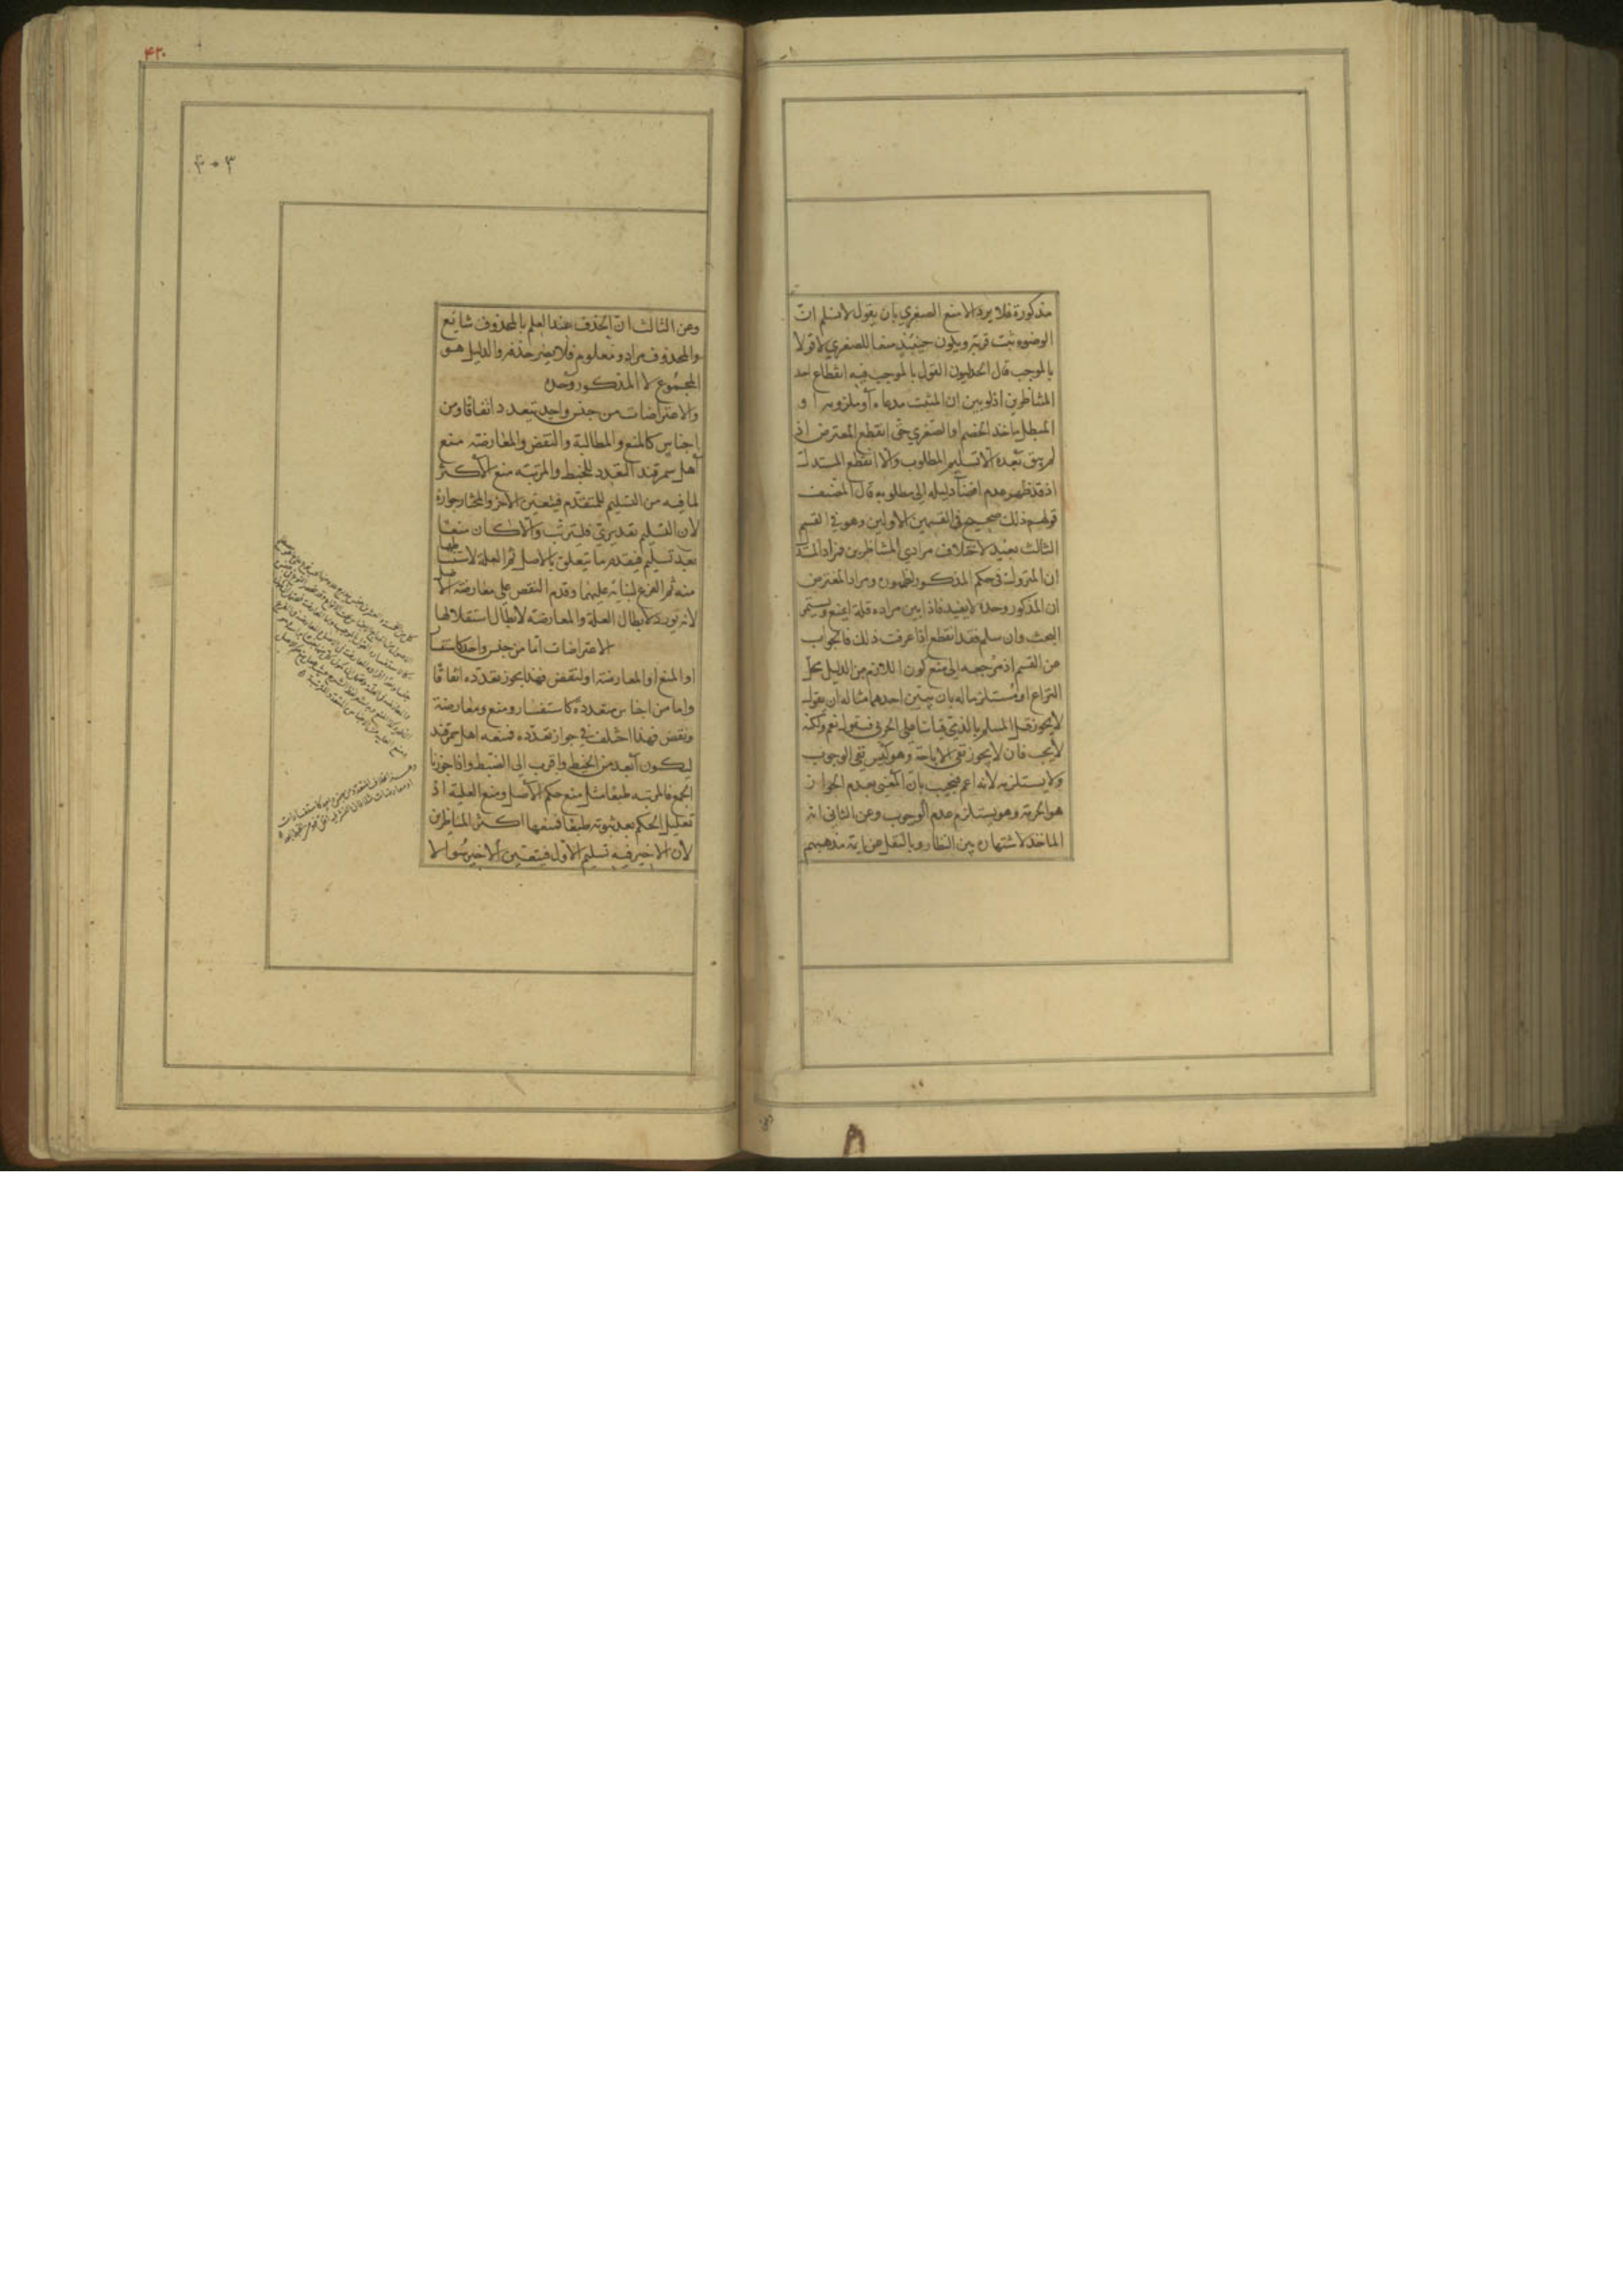 مذكورة فلا يرد الا منع الصغري بان يقول لا نسلم ان
الوضوء ثبت قربة ويكون حينئذ منعا للصغري لا قولا
بالموجب قال الجدليون القول بالموجب فيه انقطاع احد
المتناظرين اذ لو بين ان المثبت مدعاه او ملزومه او
المبطل ماخذ الخصم او الصغري حتى انقطع المعترض اذ
لم يبق بعده الا تسليم المطلوب والا انقطع المستدل
اذ قد ظهر عدم افضاء دليله الى مطلوبه قال المصنف
قولهم ذلك صحيح في القسمين الاولين وهو في القسم
الثالث بعيد لاختلاف مرادي المتناظرين فمراد المستد
ان المتروك في حكم المذكور لظهوره ومراد المعترض
ان المذكور وحده لا يفيد فاذا بين مراده فله ان يمنع ويستمر
البحث وان سلم فقد انقطع اذا عرفت ذلك فالجواب
عن القسم اذ مرجعه الى منع كون اللازم من الدليل محل
النزاع او مستلزما له بان يبين احدهما مثاله ان يقول
لا يجوز قتل المسلم بالذمي قياسا على الحربي فيقول نعم ولكنه
لا يجب فان لا يجوز نفي الاباحة وهو ليس نفي الوجوب
ولا يستلزمه لانه اعم فيجيب بان المعني بعدم الجواز
هو الحرمة وهو يستلزم عدم الوجوب وعن الثاني انه
الماخذ لاشتهاره بين النظار وبالنقل عن ايمة مذهبهم
۴۲۰
۴۰۳
وعن الثالث ان الحذف عند العلم بالمحذوف شايع
والمحذوف مراد ومعلوم فلا يضر حذفه والدليل هو
المجموع لا المذكور وحده
والاعتراضات من جنس واحد يتعدد اتفاقا ومن
اجناس كالمنع والمطالبة والنقض والمعارضة منع
اهل سمرقند التعدد للخبط والمرتبة منع الاكثر
لما فيه من التسليم للمتقدم فيتعين الاخر والمختار جوازه
لان التسليم تقديري فليترتب والا كان منعا
بعد تسليم فيقدم ما يتعلق بالاصل ثم العلة لاستنباطها
منه ثم الفرع لبنائه عليهما وقدم النقض على معارضة الاصل
لانه يورد لابطال العلة والمعارضة لابطال استقلالها
الاعتراضات اما من جنس واحد كاستفسار
او المنع او المعارضة او النقض فهذا يجوز تعدده اتفاقا
واما من اجناس متعددة كاستفسار ومنع ومعارضة
ونقض فهذا اختلف في جواز تعدده فمنعه اهل سمرقند
ليكون ابعد من الخبط واقرب الى الضبط واذا جوزنا
الجمع فالمرتبة طبعا مثل منع حكم الاصل ومنع العلية اذ
تعليل الحكم بعد ثبوته طبعا فمنعها اكثر المناظرين
لان الاخير فيه تسليم الاول فيتعين الاخير سوالا